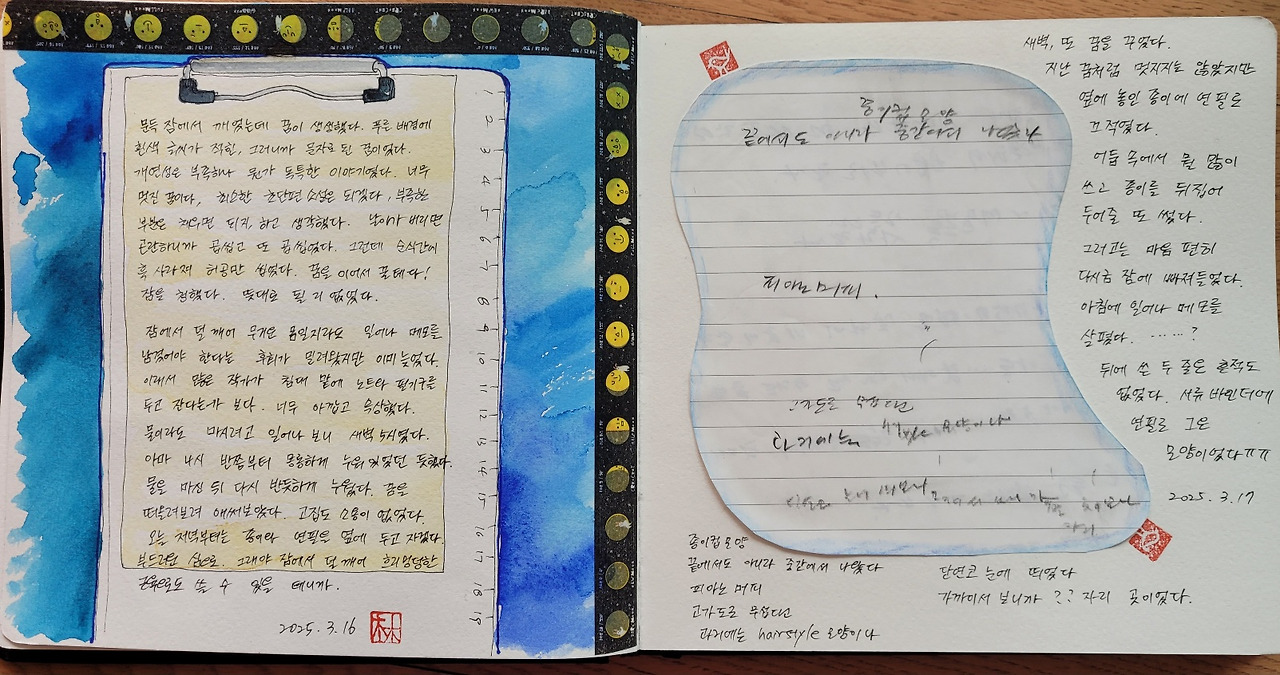 문득 잠에서 깨었는데 꿈이 생생했다. 푸른 배경에
흰색 글자가 적힌, 그러니까 글자로 된 꿈이었다.
개연성은 부족하나 뭔가 독특한 이야기였다. 너무
멋진 꿈이다, 최소한 초단편 소설은 되겠다, 부족한
부분은 채우면 되지 하고 생각했다. 날아가 버리면
곤란하니까 곱씹고 또 곱씹었다. 그런데 순식간에
훅 사라져 허공만 씹었다. 꿈을 이어서 꿀테다!
잠을 청했다. 뜻대로 될 리 없었다.
잠에서 덜 깨어 무거운 몸일지라도 일어나 메모를
남겼어야 한다는 후회가 밀려왔지만 이미 늦었다.
이래서 많은 작가가 침대 맡에 노트와 필기구를
두고 잔다는가 보다. 너무 아깝고 속상했다.
물이라도 마시려고 일어나 보니 새벽 5시였다.
아마 네시 반쯤부터 몽롱하게 누워 있었던 듯했다.
물을 마신 뒤 다시 반듯하게 누웠다. 꿈을
떠올려보려 애써보았다. 고집도 소용이 없었다.
오늘 저녁부터는 종이와 연필을 옆에 두고 자겠다.
부드러운 심으로. 그래야 잠에서 덜 깨어 흐리멍덩한
손으로도 쓸 수 있을 테니까.
2025. 3. 16
새벽, 또 꿈을 꾸었다.
지난 꿈처럼 멋지지도 않았지만
옆에 놓인 종이에 연필로
끄적였다.
어둠 속에서 뭘 많이
쓰고 종이를 뒤집어
두어줄 또 썼다.
그러고는 마음 편히
다시금 잠에 빠져들었다.
아침에 일어나 메모를
살폈다. ······?
뒤에 쓴 두 줄은 흔적도
없었다. 서류 바인더에
연필로 그은
모양이었다ㅠㅠ
2025. 3. 17
종이컵 모양
끝에서도 아니라 중간에서 나
피아노 머피.
고가도로 무섭다면
과거에는 모양이나
종이컵 모양
끝에서도 아니라 중간에서 나왔다
피아노 머피
고가도로 무섭다면
과거에는 hairstyle 모양이나
단연코 눈에 띄었다
가까이서 보니까 ?? 자리 곳이었다.